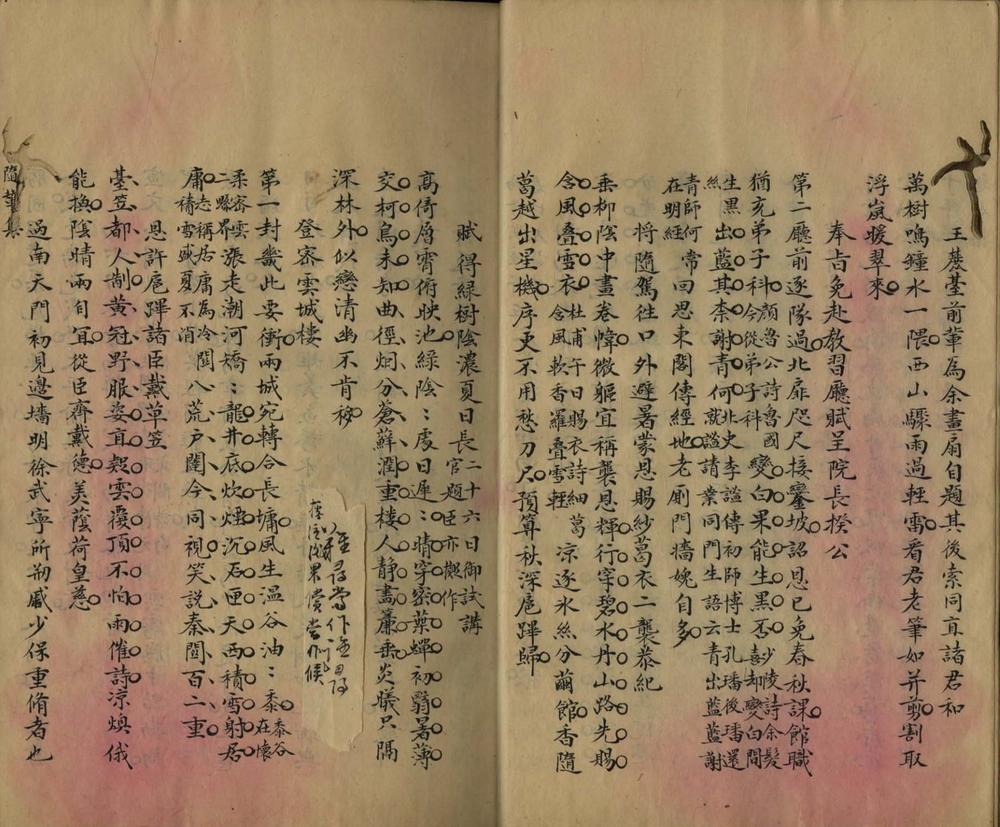 王蓬臺前輩為余畫扇自題其後索同直諸君和
萬樹鳴鐘水一隈西山驟雨過輕雷看君老筆如并剪割取
浮嵐暖翠來
奉旨免赴教習廳賦呈院長揆公
第二廳前逐隊過北扉咫尺接鑾坡詔恩已免春秋課館職
猶充弟子科顏魯公詩魯國今從弟子科變白果能生黑否少陵詩余髮喜却變白間
生黑絲出藍其柰謝青何北史李謐傳初師博士孔璠後璠還就謐請業同門生語云青出藍藍謝
青師何在明經常回思東閣傳經地老廁門牆媿自多
將隨駕往口外避暑蒙恩賜紗葛衣二襲恭紀
垂柳陰中晝卷幃微軀宜稱襲恩輝行穿碧水丹山路先賜
含風叠雪衣杜甫午日賜衣詩細葛含風軟香羅叠雪輕涼逐氷絲分繭館香隨
葛越出星機序更不用愁刀尺預算秋深扈蹕歸
賦得綠樹陰濃夏日長二十六日御試講官題臣亦擬作
高倚層霄俯映池綠陰：處日遲：晴穿密葉蟬初翳暑薄
交柯鳥未知曲徑烟分蒼蘚潤重樓人静畫簾垂炎曦只隔
深林外似戀清幽不肯移
登密雲城樓
第一封畿此要衝兩城宛轉合長墉風生溫谷油：黍黍谷在懷
柔密雲二縣界雲漲走潮河橋：龍井底炊煙沉石匣天西積雪射居
庸志稱居庸為冷積雪盛夏不消閶八荒户闥今同視笑説秦關百二重
恩許扈蹕諸臣戴草笠
臺笠都人制黄冠野服姿直教雲覆頂不怕雨催詩涼燠俄
能換陰晴兩自宜從臣齊戴德美蔭荷皇慈
過南天門初見邊墻明徐武寧所剏戚少保重脩者也
隨輦集